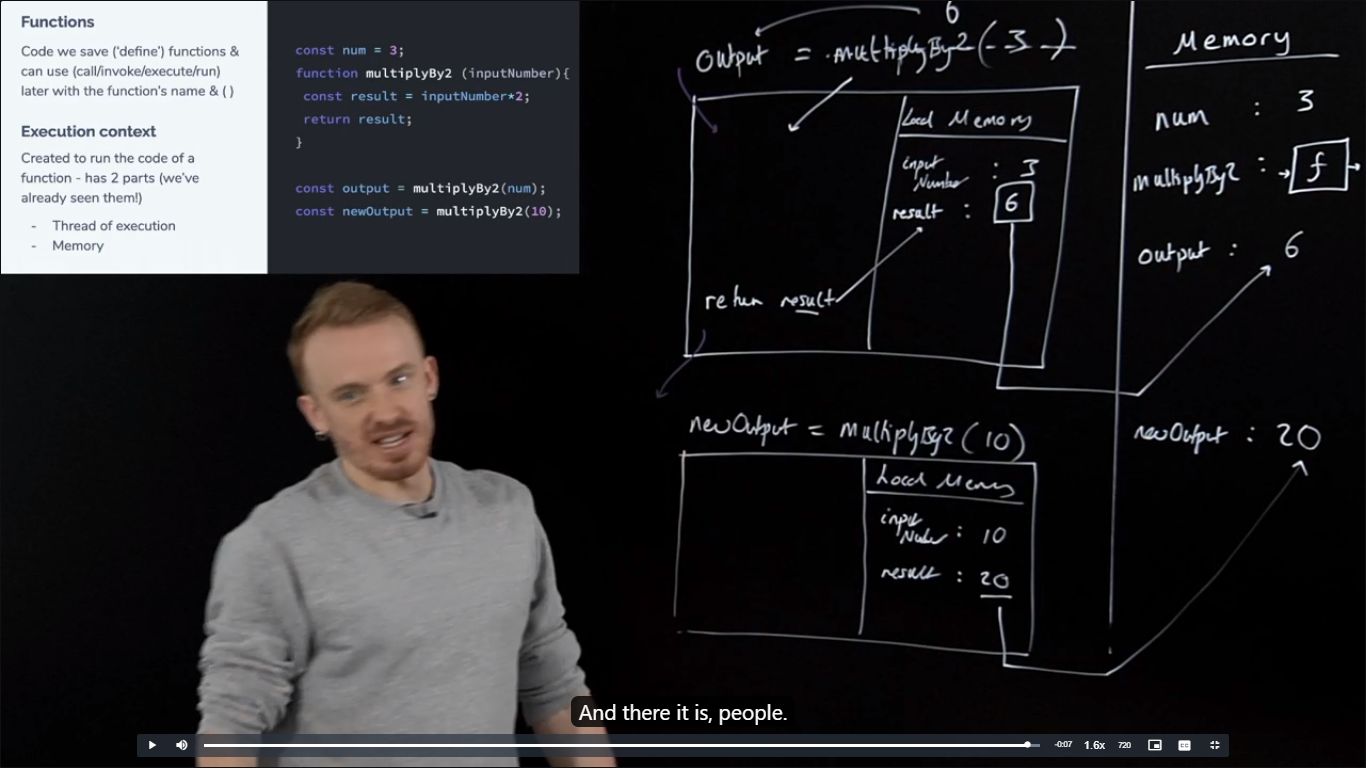 Functions
Code we save (‘define’) functions &
can use (call/invoke/execute/run)
later with the function’s name & ( )
Execution context
Created to run the code of a
function - has 2 parts (we’ve
already seen them!)
- Thread of execution
- Memory
const num = 3;
function multiplyBy2 (inputNumber){
const result = inputNumber*2;
return result;
}
const output = multiplyBy2(num);
const newOutput = multiplyBy2(10);
6
output = multiplyBy2(3)
Local Memory
input
Number : 3
result : 6
return result
newOutput = multiplyBy2(10)
Local Memory
input
Number : 10
result : 20
Memory
num : 3
multiplyBy2 : f
output : 6
newOutput : 20
And there it is, people.
-0:07 1.6x 720 CC